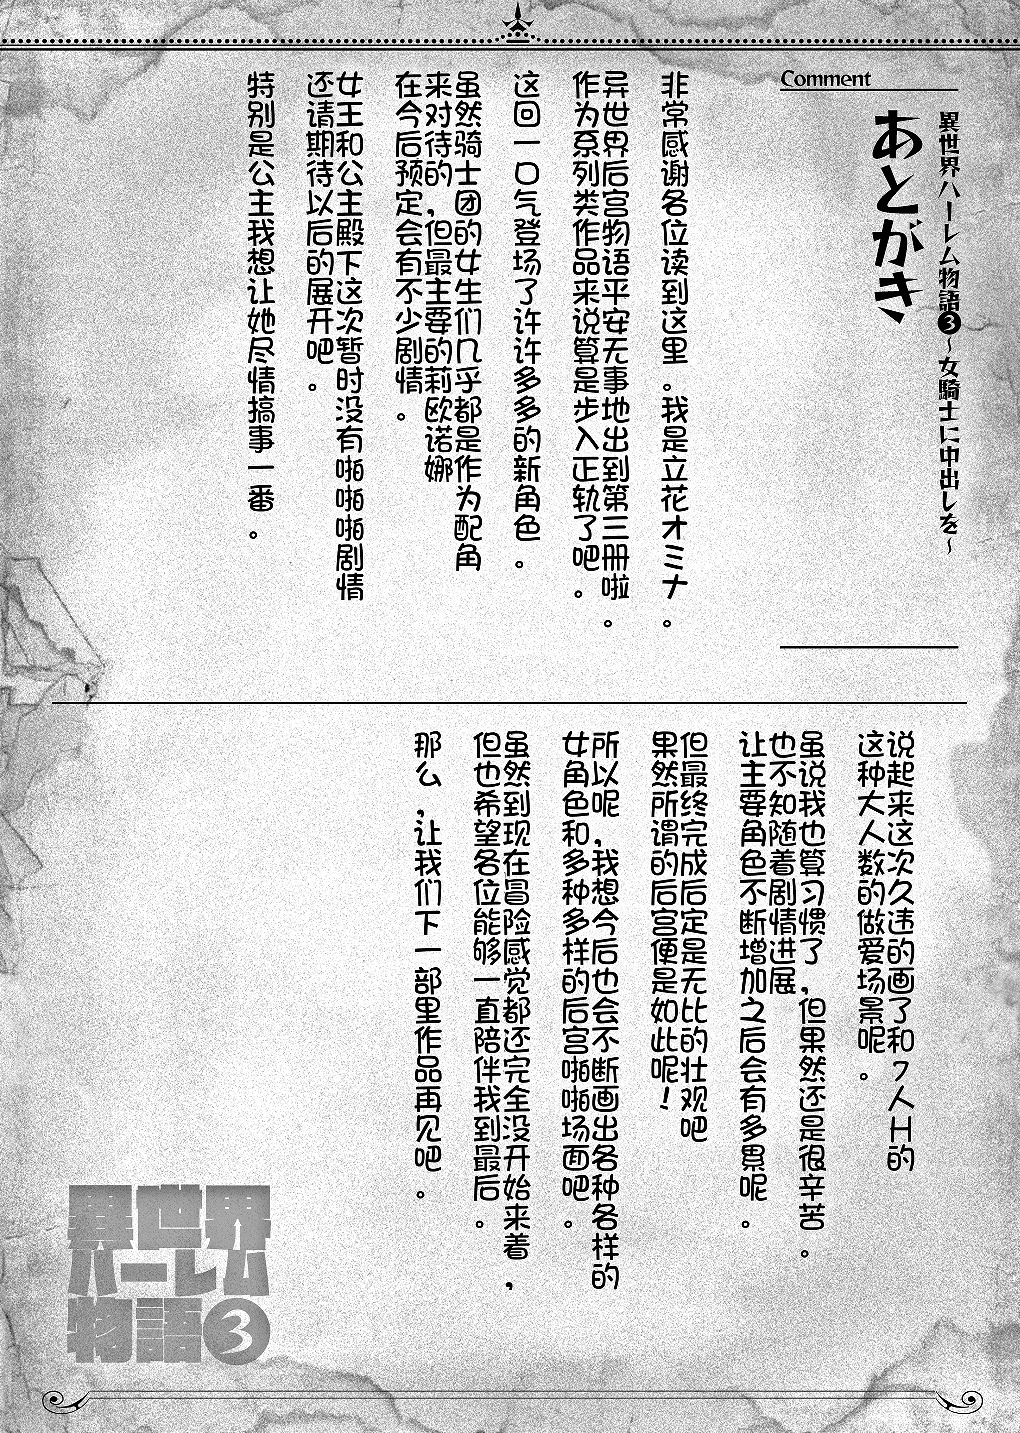 Comment
異世界ハーレム物語❸~女騎士に中出しを~
あとがき
非常感谢各位读到这里。我是立花オミナ。
异世界后宫物语平安无事地出到第三册啦。
作为系列类作品来说算是步入正轨了吧。
这回一口气登场了许许多多的新角色。
虽然骑士团的女生们几乎都是作为配角
来对待的,但最主要的莉欧诺娜
在今后预定会有不少剧情。
女王和公主殿下这次暂时没有啪啪啪剧情
还请期待以后的展开吧。
特别是公主我想让她尽情搞事一番。
说起来这次久违的画了和7人H的
这种大人数的做爱场景呢。
虽说我也算习惯了,但果然还是很辛苦。
也不知随着剧情进展
让主要角色不断增加之后会有多累呢。
但最终完成后定是无比的壮观吧
果然所谓的后宫便是如此呢!
所以呢,我想今后也会不断画出各种各样的
女角色和多种多样的后宫啪啪场面吧。
虽然到现在冒险感觉都还完全没开始来着,
但也希望各位能够一直陪伴我到最后。
那么,让我们下一部里作品再见吧。
異世界
ハーレム
物語❸